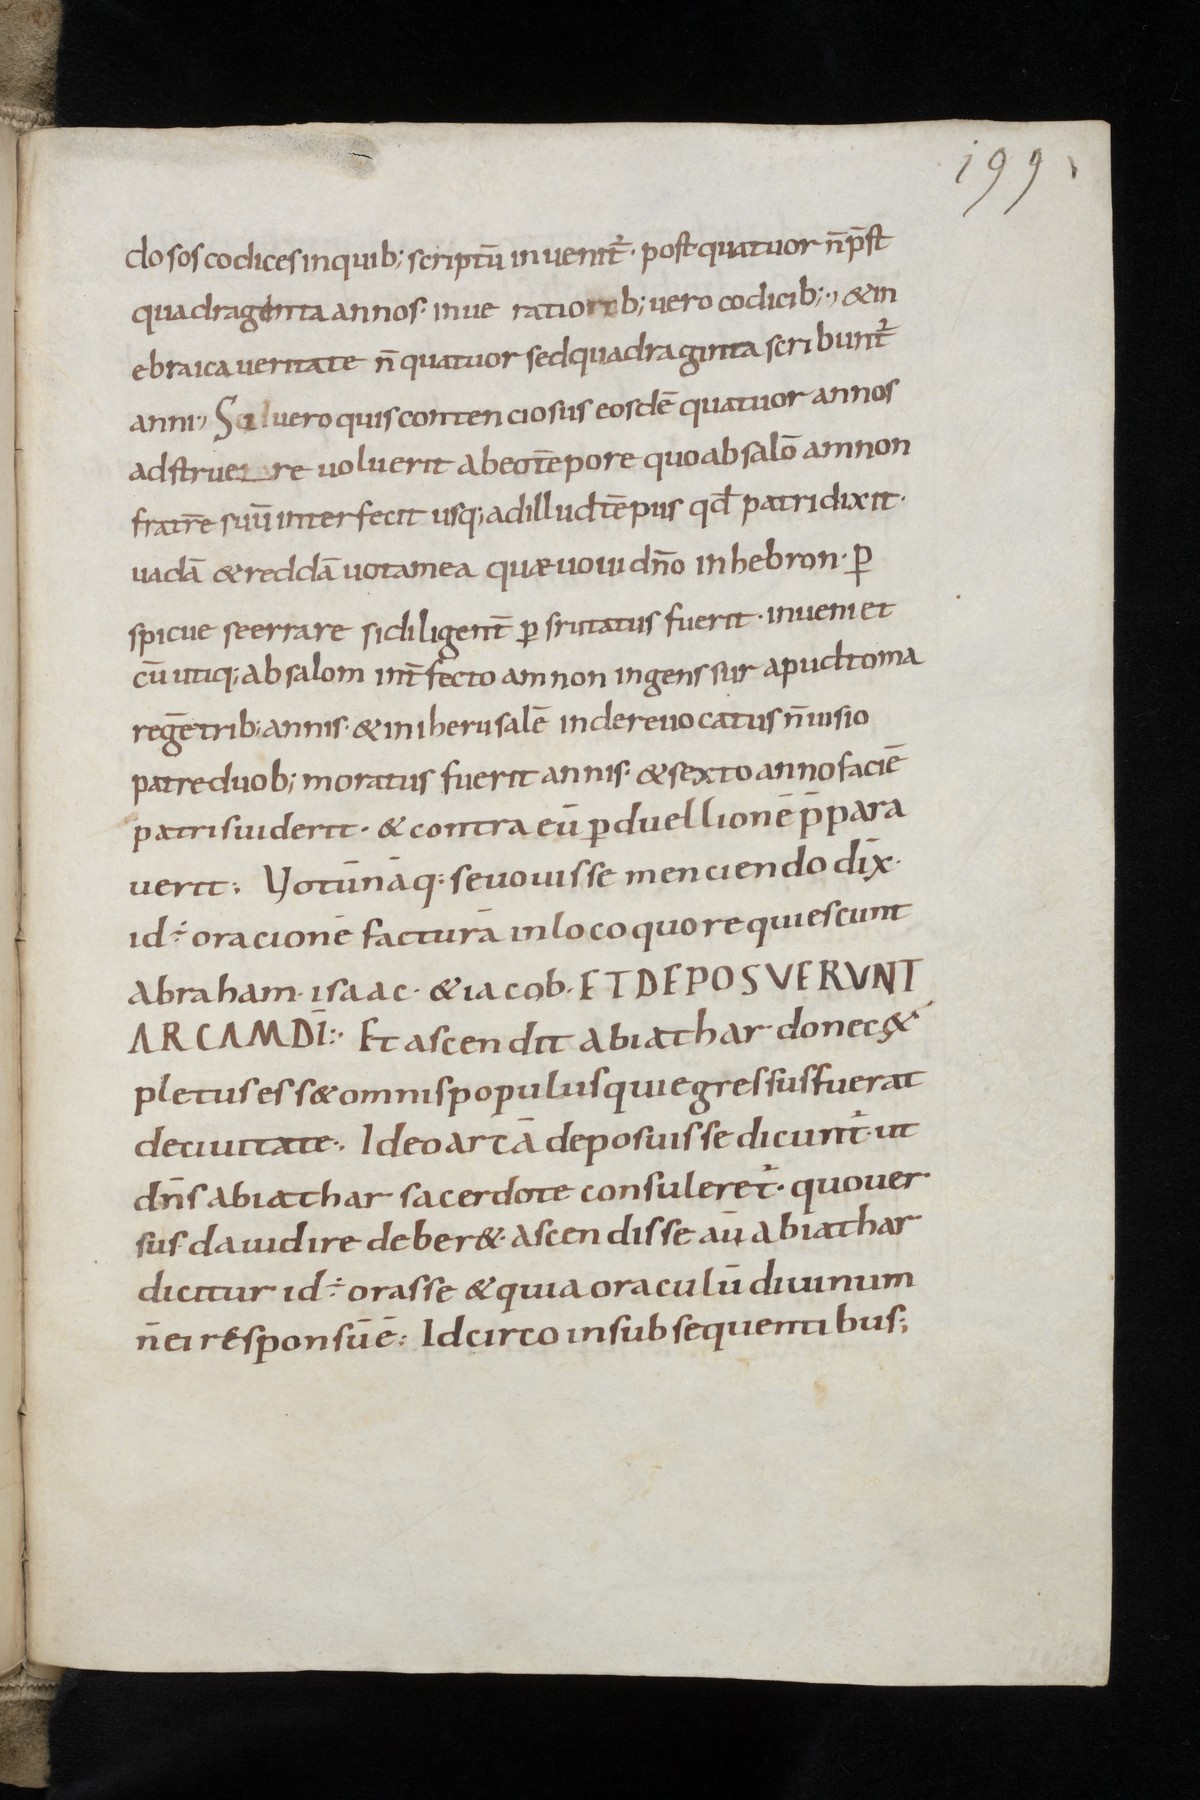 199
dosos codices in quib; scriptū inuenit̄· post quatuor n̄ p̄st
quadraginta annos· inue ratiorib; uero codicib;·, & in
ebraica ueritate n̄ quatuor sed quadraginta scribunt̄
anni·, Si uero quis contenciosus eosdē quatuor annos
adstruere uoluerit ab eo tēpore quo absalō amnon
fratrē suū interfecit usq; ad illud tēpus qđ patri dixit·
uadā & reddā uota mea quæ uoui dn̄o in hebron· ꝑ
spicue se errare si diligent̄ ꝑ srutatus fuerit· inueniet
cū utiq; absalom int̄fecto amnon ingenssur apud toma
regē trib; annis· & in iherusalē inde reuocatus n̄ uisio
patre duob; moratus fuerit annis· & sexto anno faciē
patris uiderit· & contra eū ꝑduellionē p̄para
uerit; Votūnāq: se uouisse menciendo dix̄·
id·÷ oracionē facturā in loco quo requiescunt
abraham· isaac· & iacob· ET DEPOSUERUNT
ARCAM DĪ:· Et ascendit abiathar donec &
pletus ess& omnis populus qui egressus fuerat
de ciuitate·, Ideo arcā deposuisse dicunt̄· ut
dn̄s abiathar sacerdote consuleret̄· quo uer
sus dauid ire deber&· ascendisse aū abiathar
dicitur id·÷ orasse & quia oraculū diuinum
n̄ ei responsū ē; Idcirco in subsequentibus;